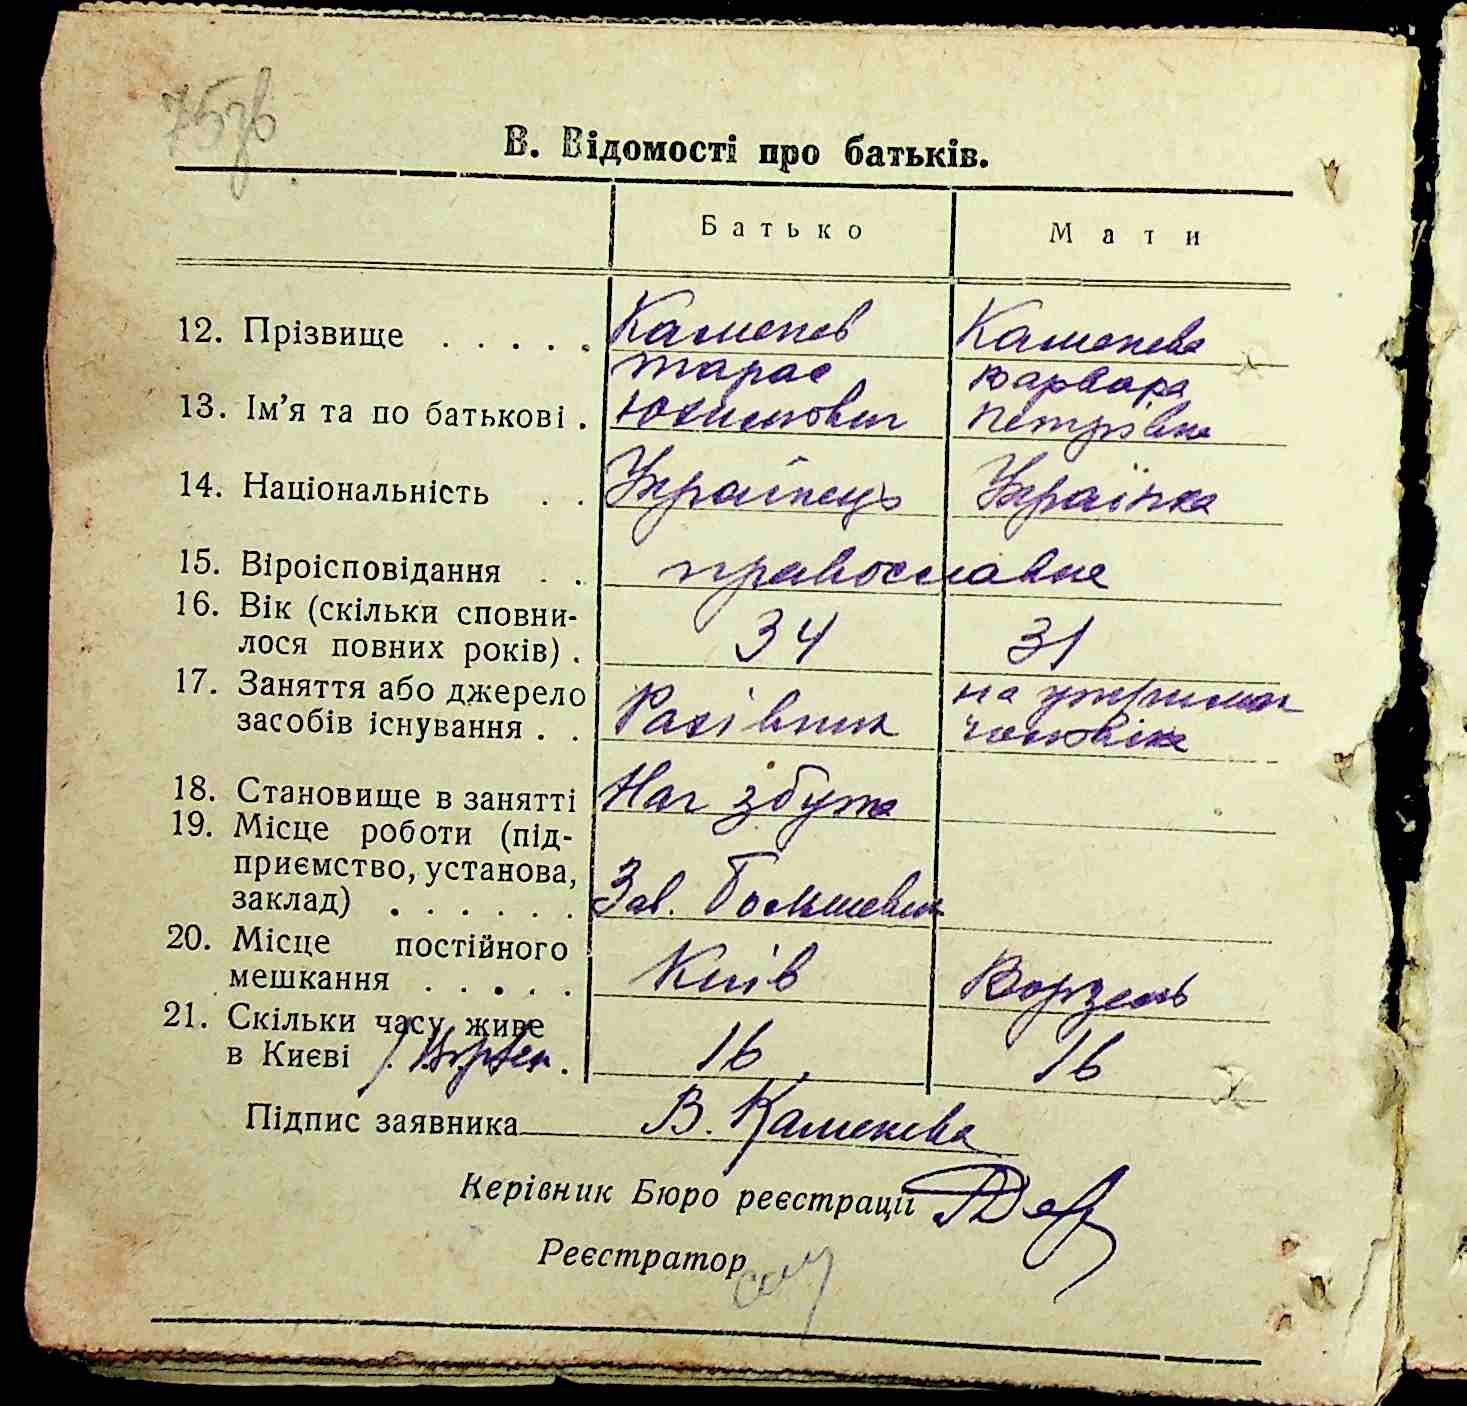 75зв
В. Відомості про батьків.
Батько Мати
12. Прізвище . . . . . Каменев Каменева
Тарас Варвара
13. Ім'я та по батькові . Юхимович Петрівна
14. Національність . . Українець Українка
15. Віроісповідання . . православне
16. Вік (скільки сповни-
лося повних років) . 34 31
17. Заняття або джерело на утриман
засобів існування . . Рахівник чоловіка
18. Становище в занятті Нач збута
19. Місце роботи (під-
приємство, установа,
заклад) . . . . . . Зав. Большевик
20. Місце постійного
мешкання . . . . . Київ Ворзель
21. Скільки часу живе
в Києві . 16 16
Підпис заявника В. Каменева
Керівник Бюро реєстрації
Реєстратор